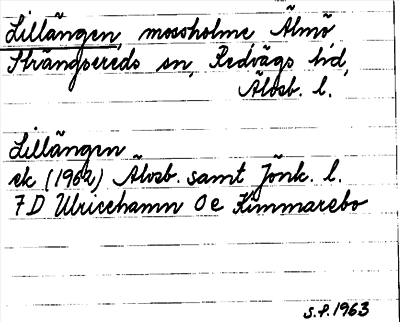 Lillängen, mossholme Älmö,
Strängsereds sn, Redvägs hd,
Älvsb. l.
Lillängen
ek (1962) Älvsb. samt Jönk. l.
7D Ulricehamn 0e Kimmarebo
S.F. 1963